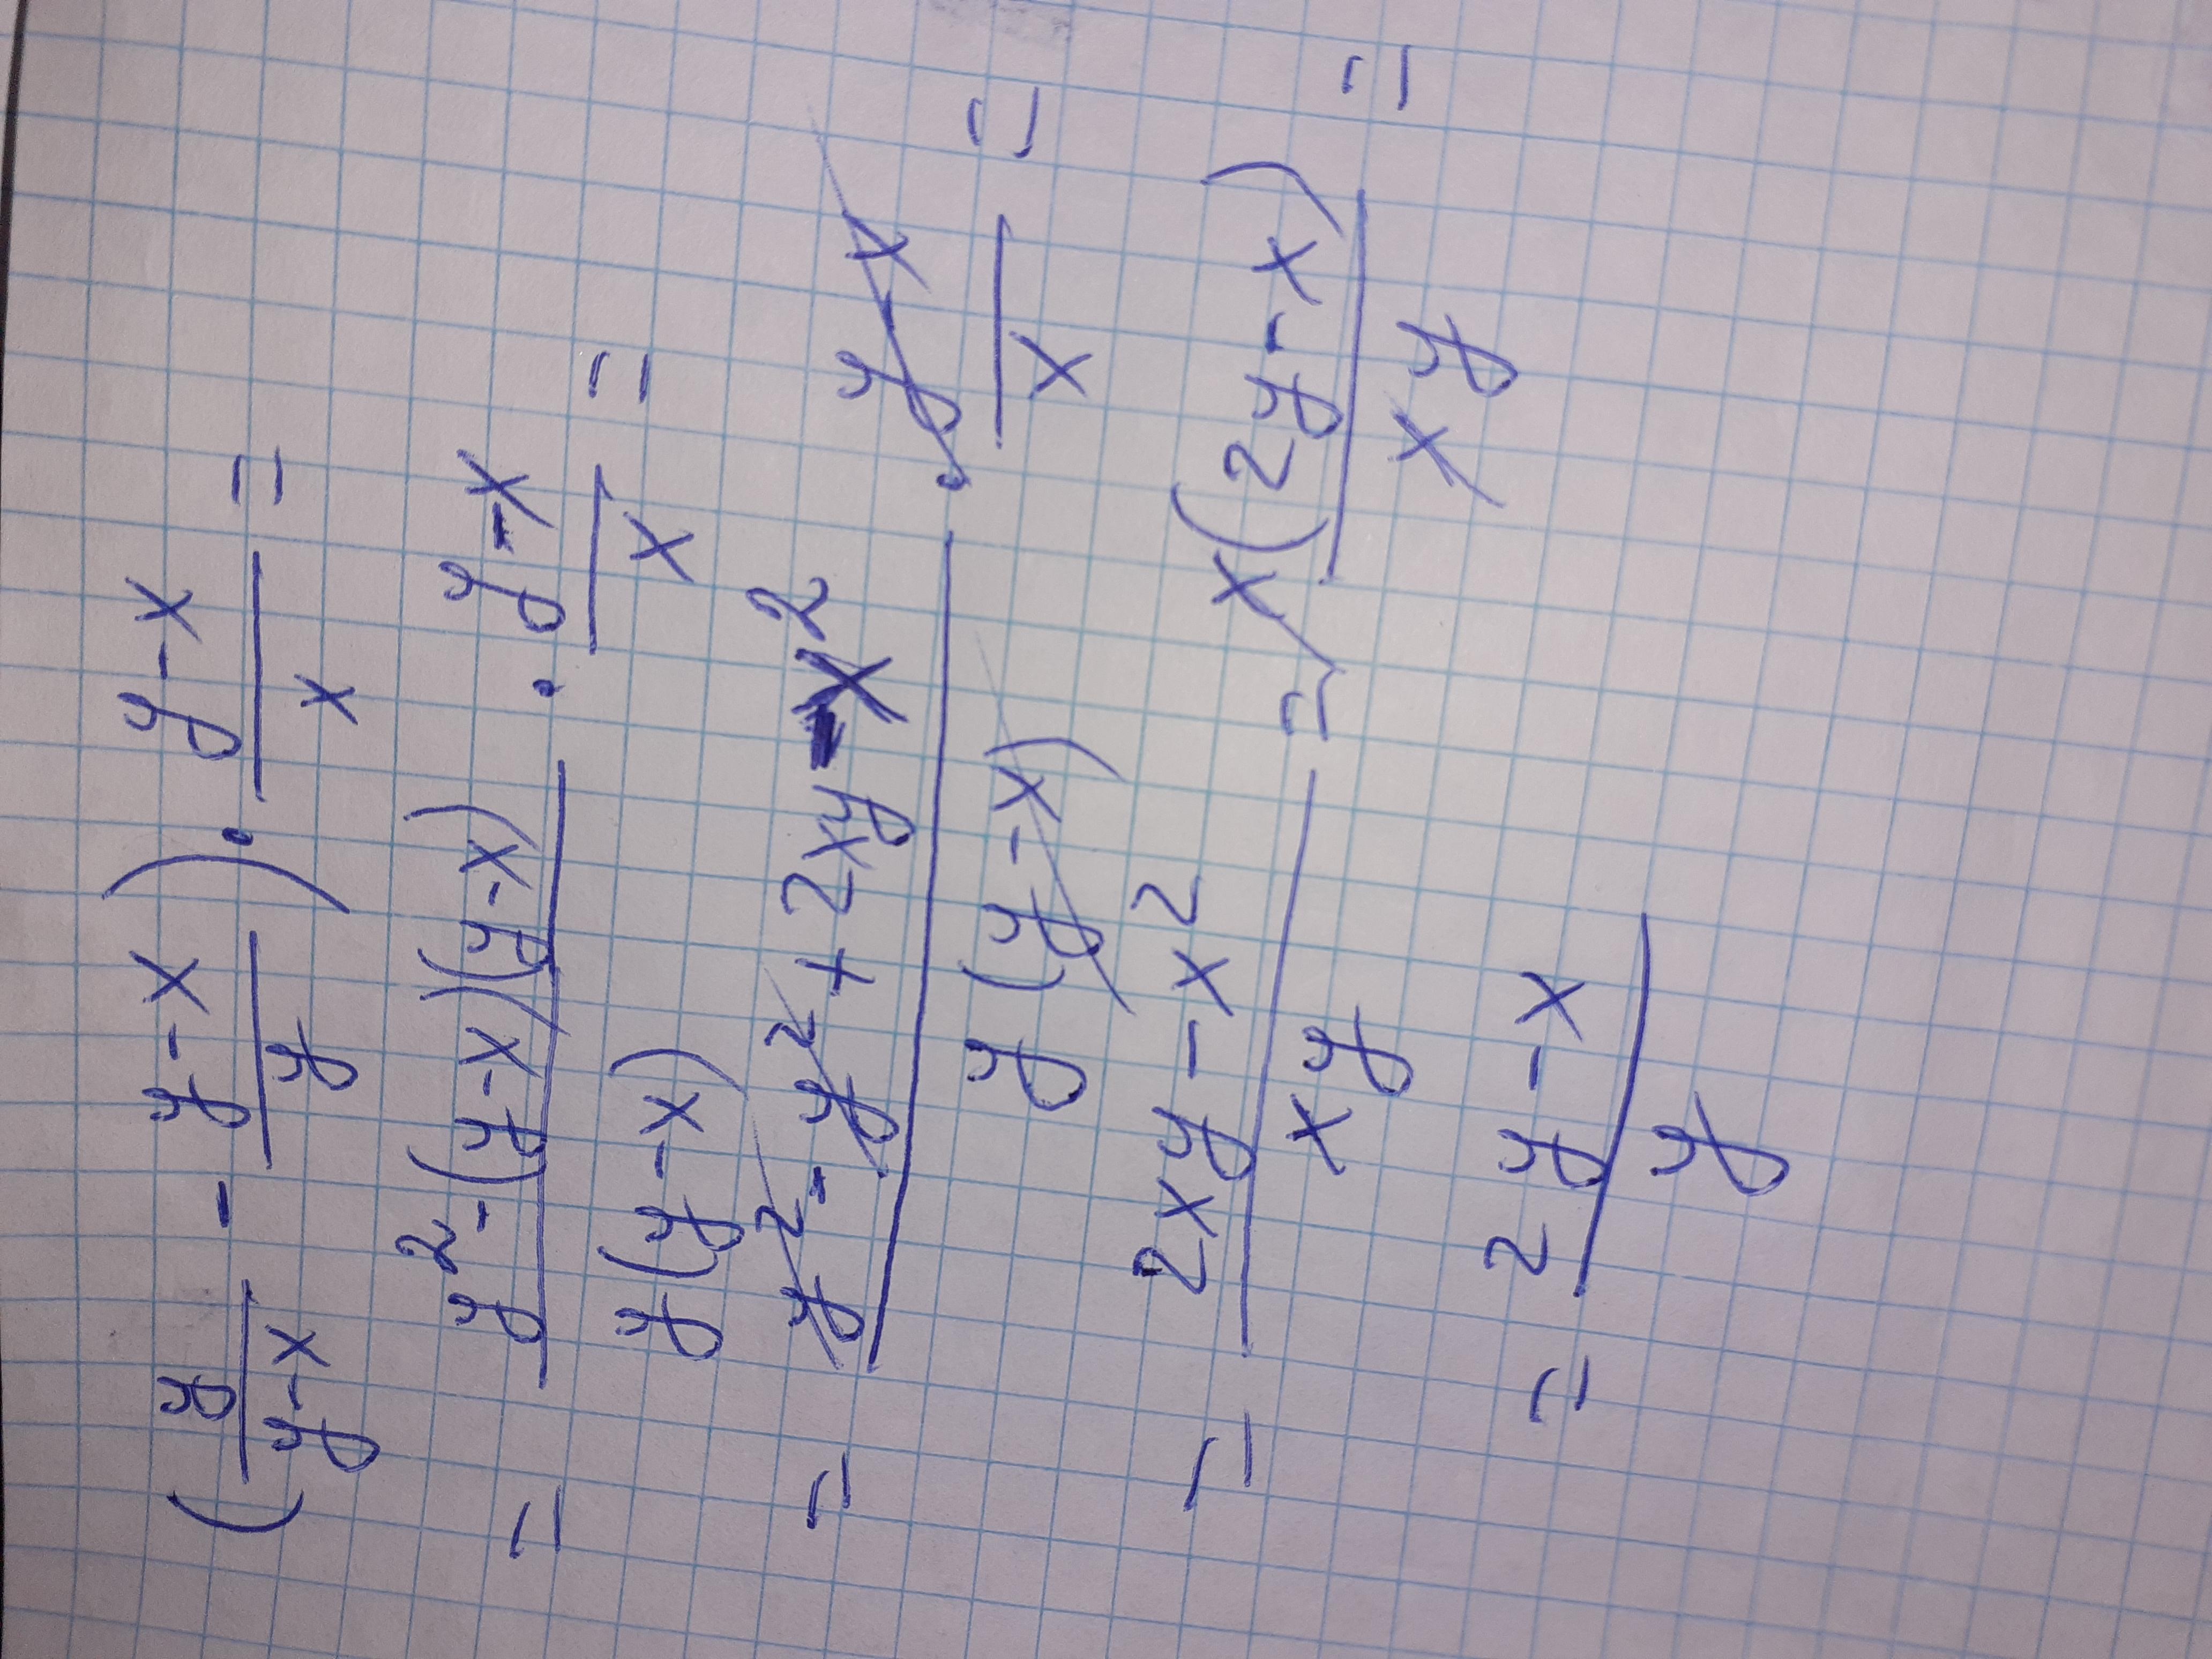 (y/(y-x) - (y-x)/y) · (y-x)/x =
= (y² - (y-x)(y-x))/(y(y-x)) · (y-x)/x =
= (y² - y² + 2xy - x²)/(y(y-x)) · (y-x)/x =
= (2xy - x²)/(xy) = x(2y-x)/(xy) =
= (2y-x)/y